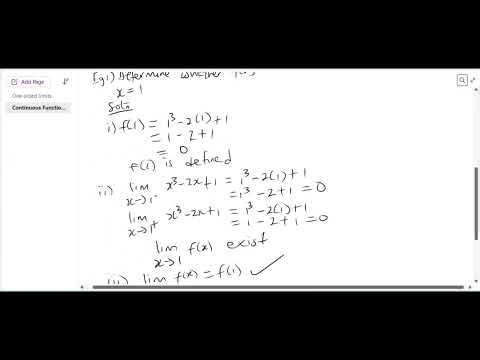 Add Page
One-sided limits
Continuous Functio...
Eg1) Determine whether
x = 1
Soln
i) f(1) = 1³-2(1)+1
= 1-2+1
= 0
f(1) is defined
ii) lim x³-2x+1 = 1³-2(1)+1
x→1⁻ =1³-2+1 = 0
lim x³-2x+1 = 1³-2(1)+1
x→1⁺ = 1-2+1 = 0
lim f(x) exist
x→1
iii) lim f(x) = f(1) ✓